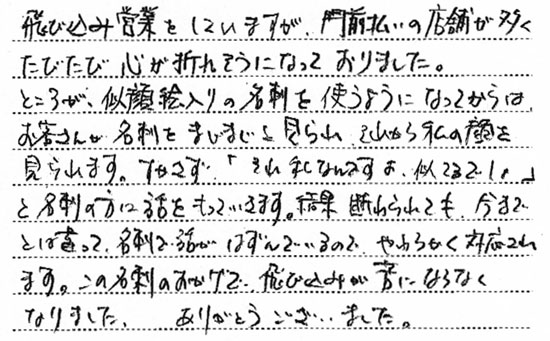 飛び込み営業をしていますが、門前払いの店舗が多く
たびたび心が折れそうになっておりました。
ところが、似顔絵入りの名刺を使うようになってからは、
お客さんが名刺をまじまじと見られ、それから私の顔を
見られます。すかさず、「それ私なんですよ、似てるでしょ。」
と名刺の方に話をもっていきます。結果断わられても、今まで
とは違って、名刺で話がはずんでいるので、やわらかく対応され
ます。この名刺のおかげで、飛び込みが苦にならなく
なりました。 ありがとうございました。